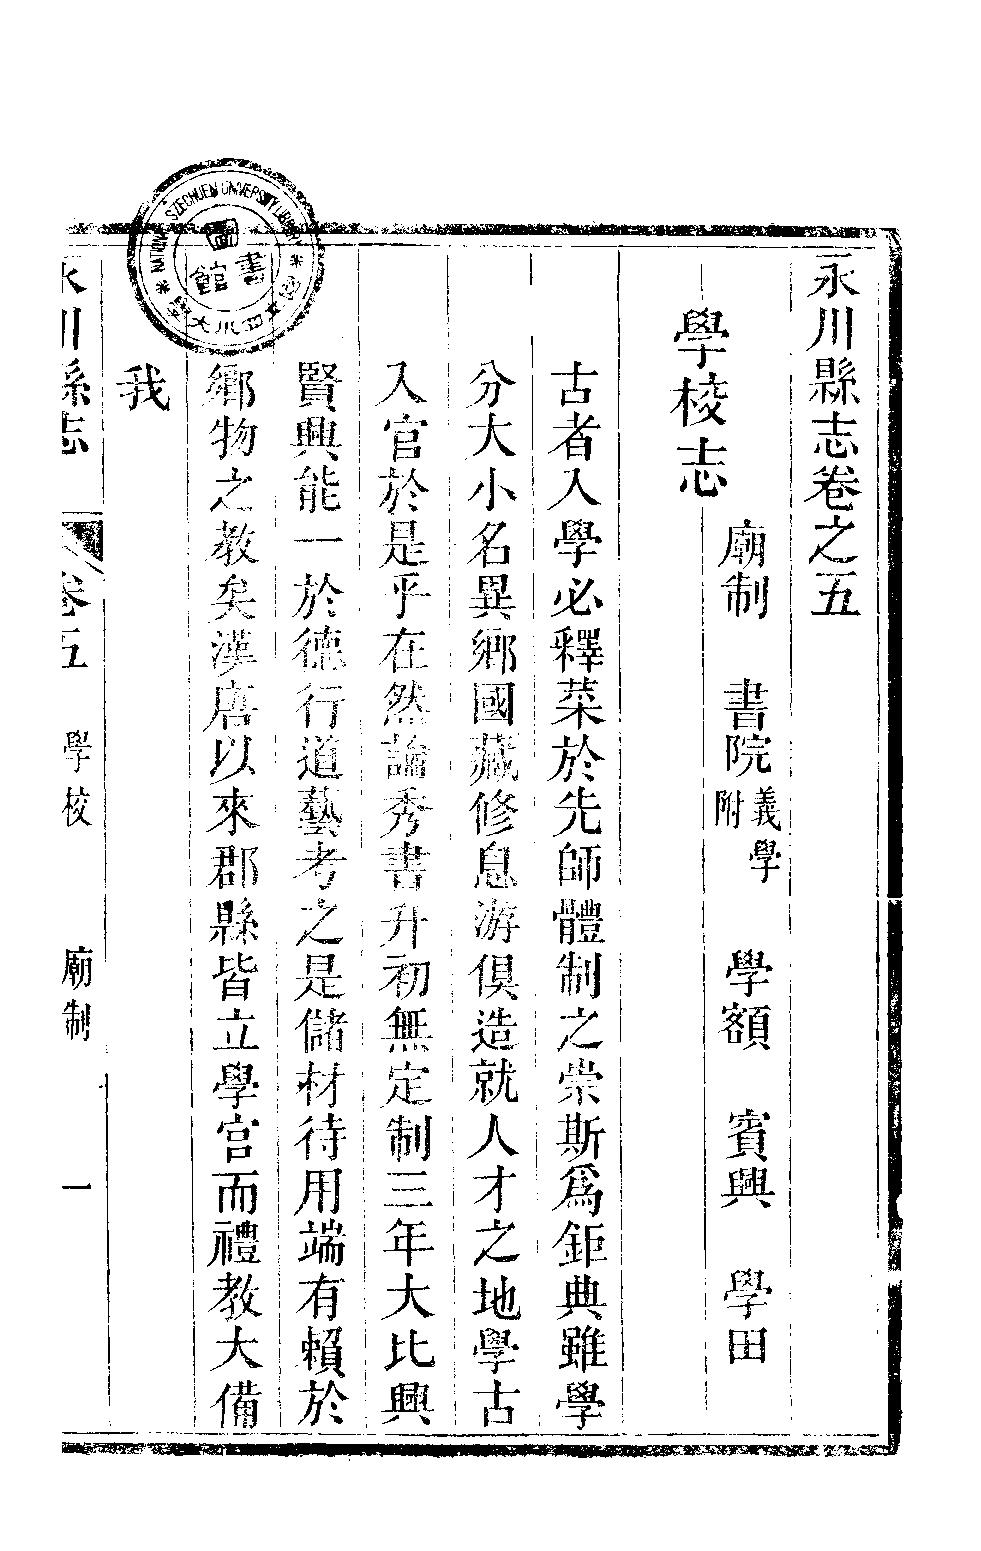 永川縣志卷之五
學校志
廟制 書院 義學附 學額 賓興 學田
古者入學必釋菜於先師體制之崇斯爲鉅典雖學
分大小名異鄉國藏修息游俱造就人才之地學古
入官於是乎在然論秀書升初無定制三年大比興
賢興能一於德行道藝考之是儲材待用端有賴於
鄉物之教矣漢唐以來郡縣皆立學官而禮教大備
我
永川縣志 卷五 學校 廟制 一
NATIONAL SZECHUEN UNIVERSITY LIBRARY
國立四川大學
圖書館